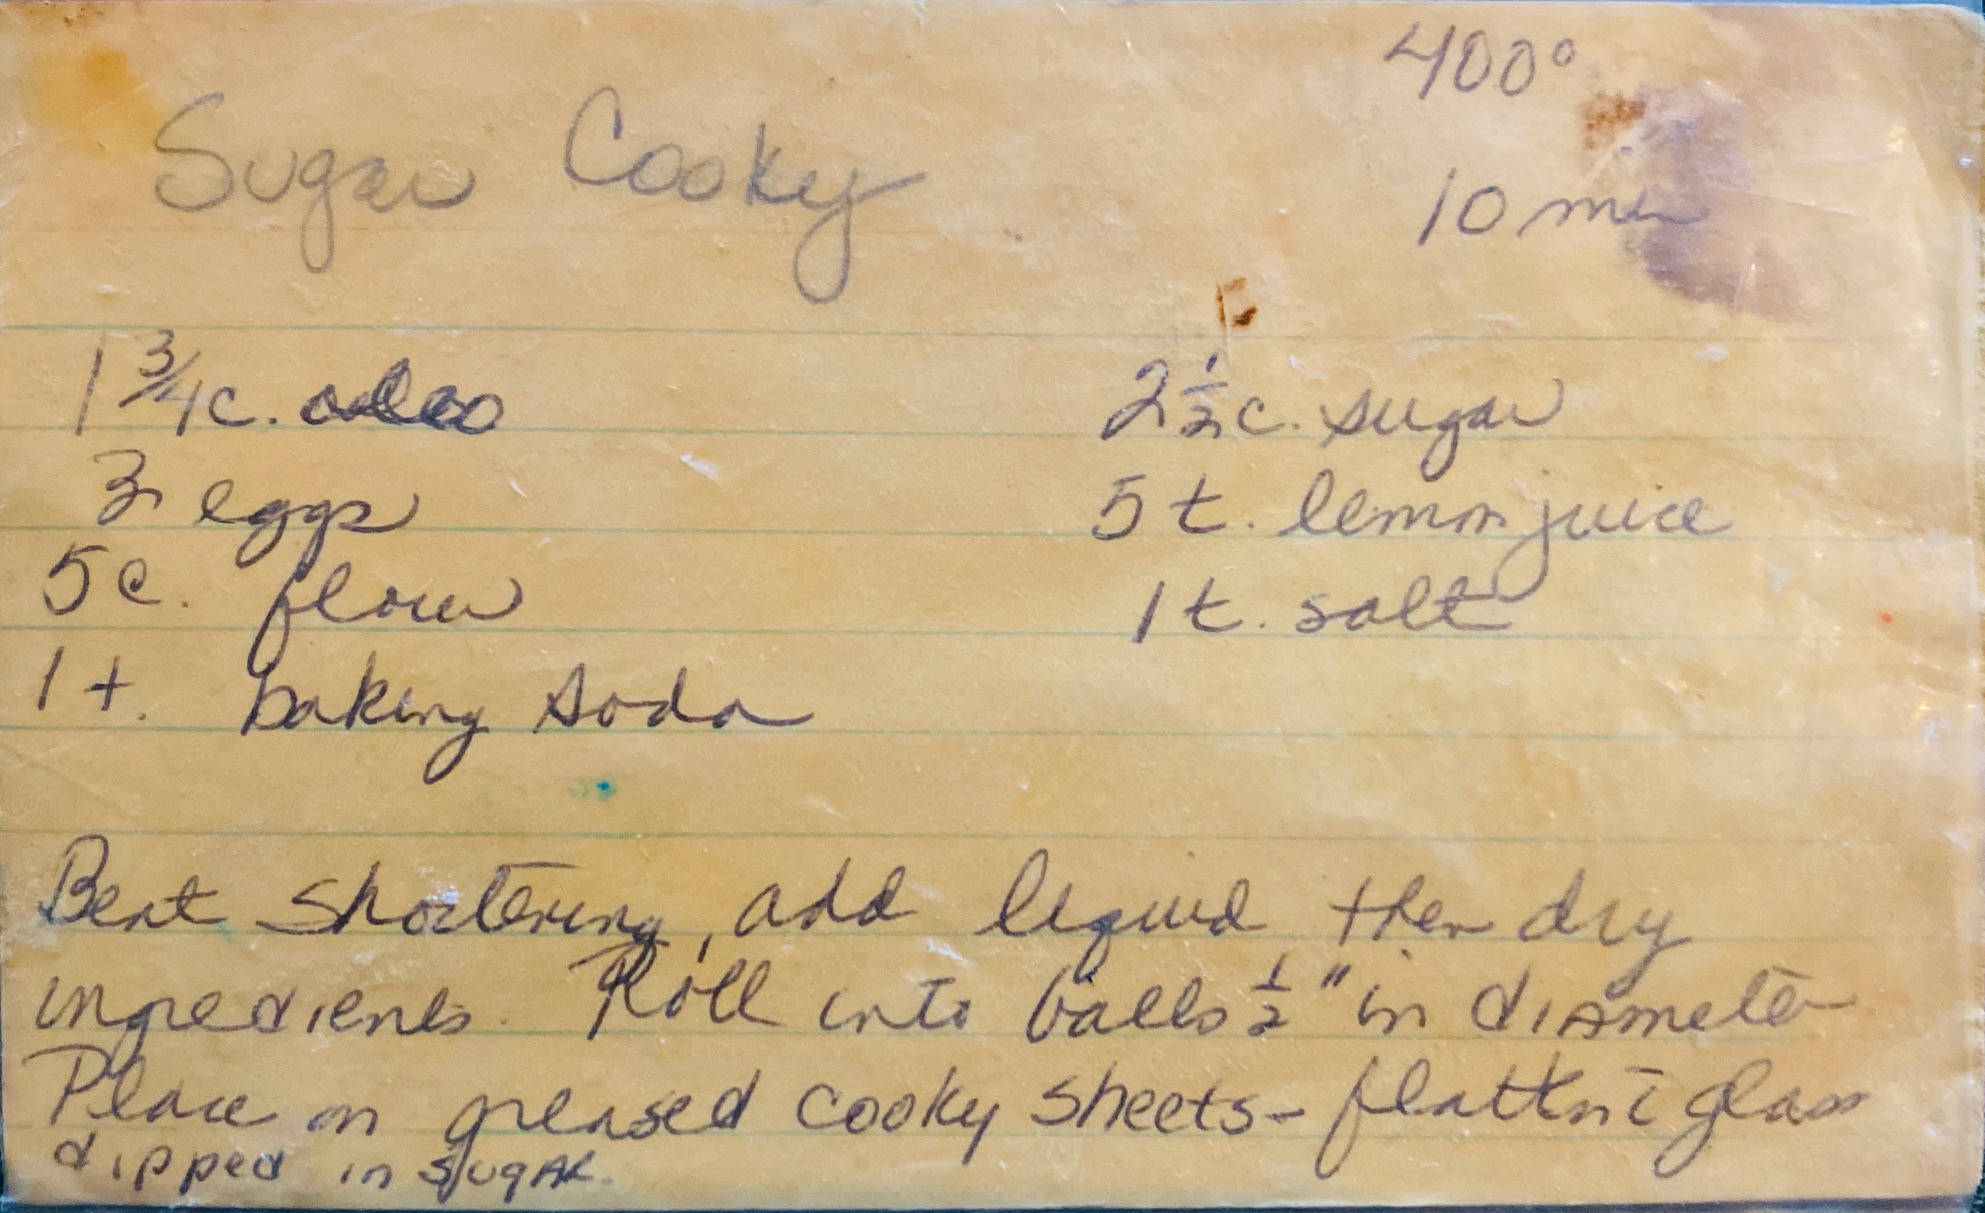 400°
Sugar Cooky
10 min
1 3/4 c. oleo
2 1/2 c. sugar
3 eggs
5 t. lemon juice
5 c. flour
1 t. salt
1 t. baking soda
Beat shortening, add liquid then dry
ingredients. Roll into balls 1/2" in diameter
Place on greased cooky sheets - flatten c̄ glass
dipped in sugar.